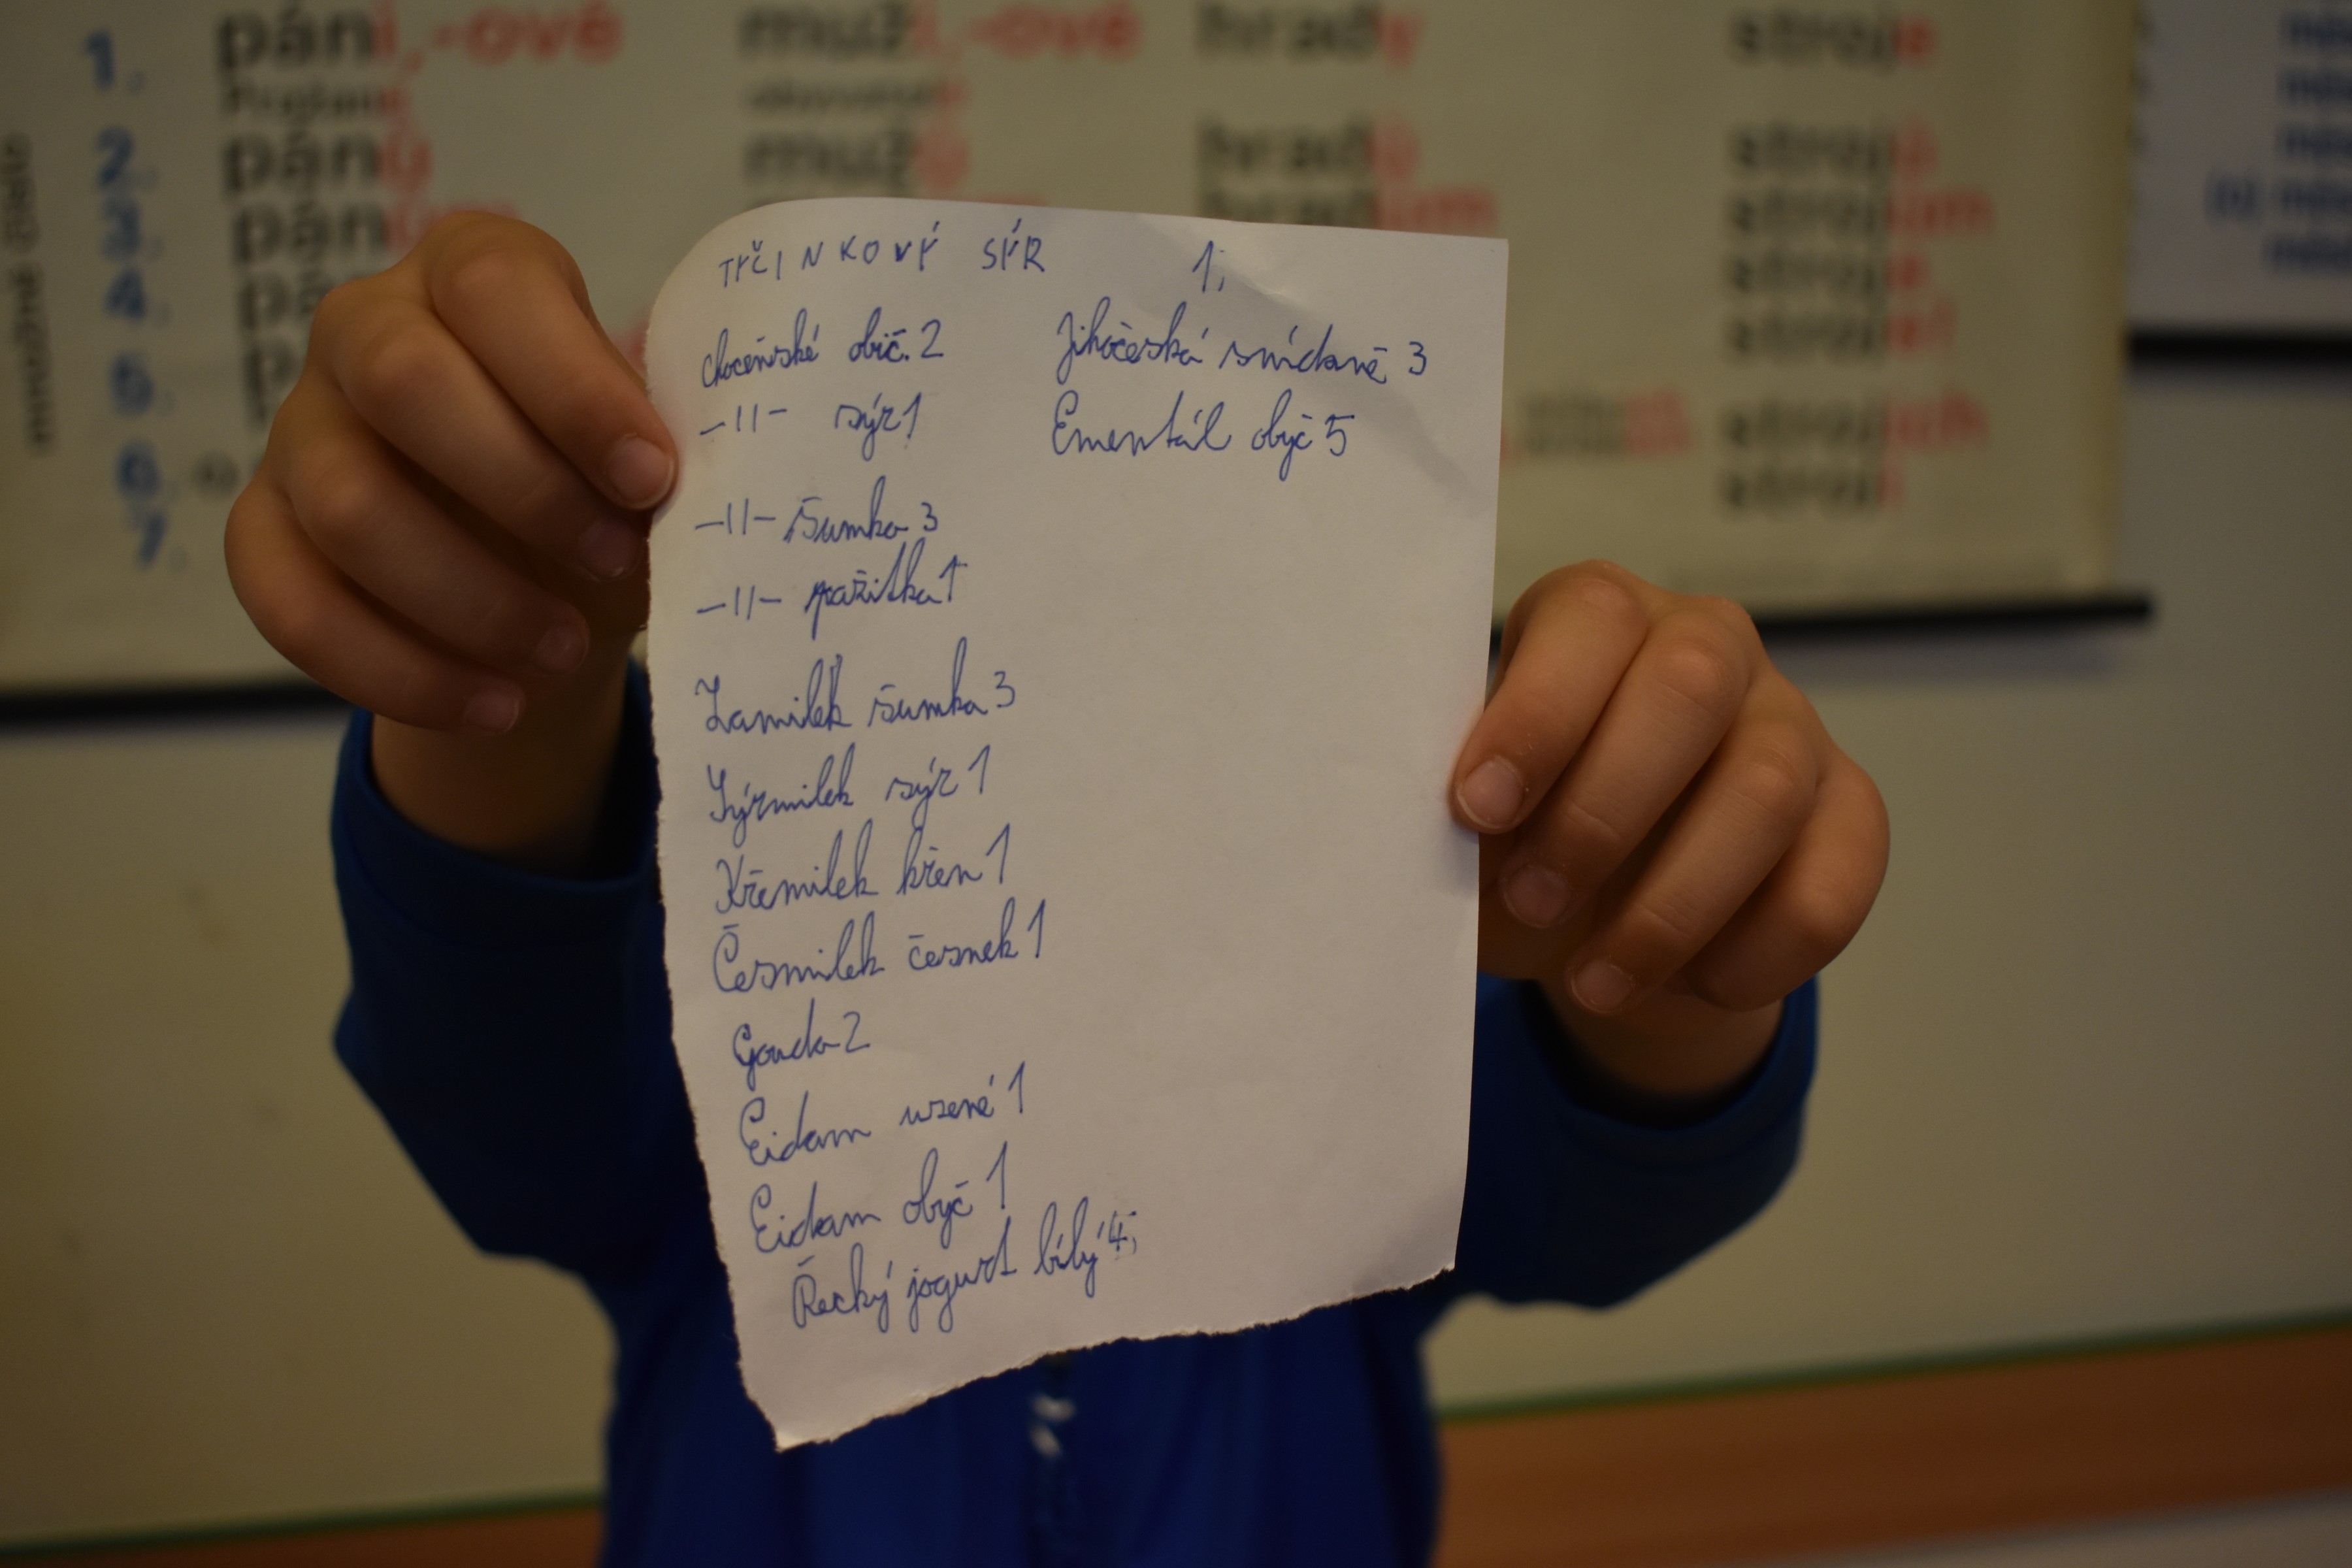 1. páni,-ové muži,-ové hrady stroje
Pražané obyvatelé
2. pánů mužů hradů strojů
3. pánům hradům strojům
4. stroje
5. stroje!
6. o strojích
7. stroji
mužné číslo
TYČINKOVÝ SÝR 1,
choceňské obič. 2 Jihočeská snídaně 3
-11- sýr 1 Ementál obyč 5
-11- šumka 3
-11- pažitka 1
Lamilek šumka 3
Sýrmilek sýr 1
Křemilek křen 1
Česmilek česnek 1
Gouda 2
Eidam uzené 1
Eidam obyč 1
Řecký jogurt bílý 4,